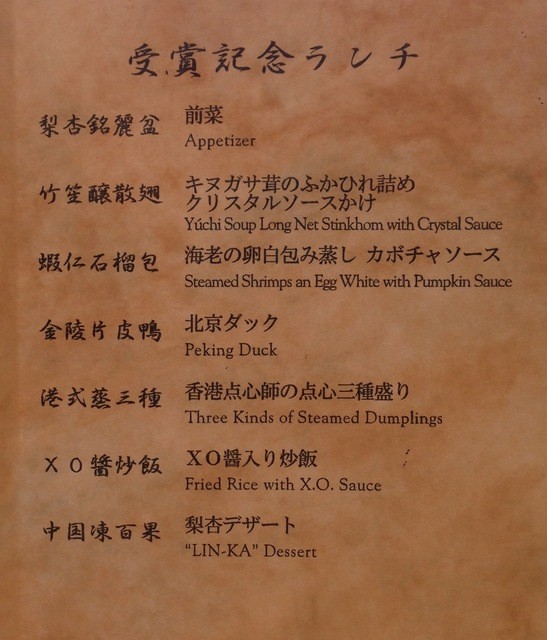 受賞記念ランチ
梨杏銘麗盆 前菜
Appetizer
竹笙釀散翅 キヌガサ茸のふかひれ詰め
クリスタルソースかけ
Yúchi Soup Long Net Stinkhom with Crystal Sauce
蝦仁石榴包 海老の卵白包み蒸し カボチャソース
Steamed Shrimps an Egg White with Pumpkin Sauce
金陵片皮鴨 北京ダック
Peking Duck
港式蒸三種 香港点心師の点心三種盛り
Three Kinds of Steamed Dumplings
XO醬炒飯 XO醤入り炒飯
Fried Rice with X.O. Sauce
中国凍百果 梨杏デザート
“LIN-KA” Dessert